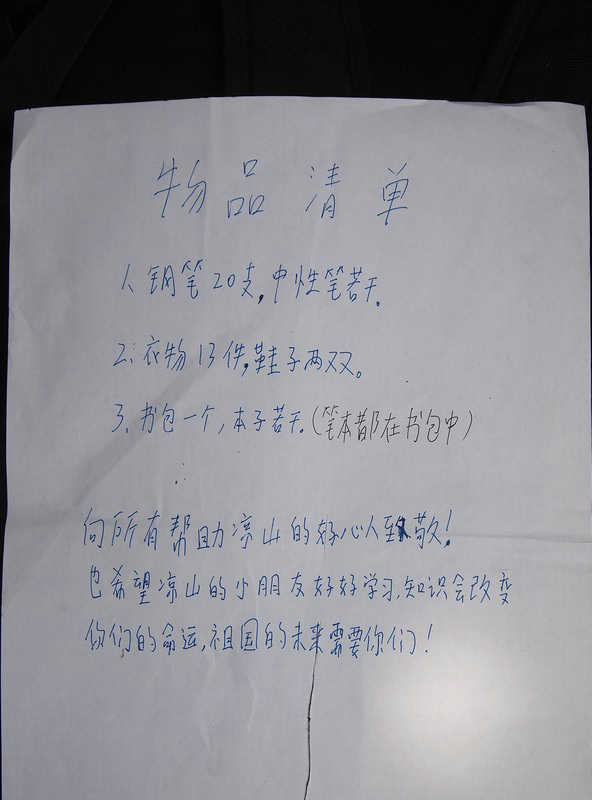 物品清单
1、钢笔20支，中性笔若干。
2、衣物13件，鞋子两双。
3、书包一个，本子若干。（笔本都在书包中）
向所有帮助凉山的好心人致敬！
也希望凉山的小朋友好好学习，知识会改变
你们的命运，祖国的未来需要你们！